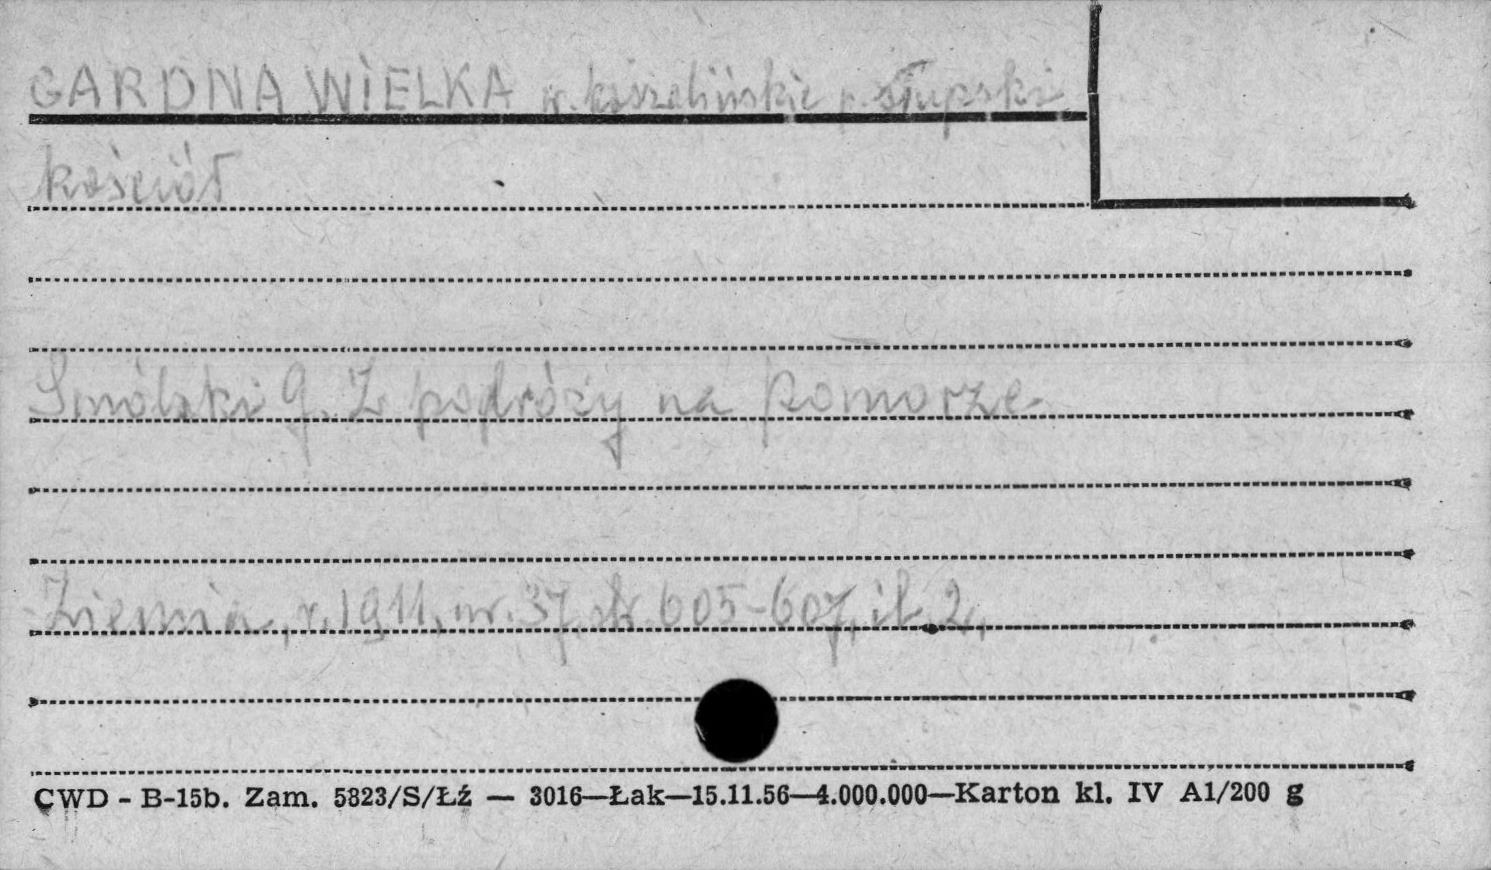 GARDNA WIELKA w. koszalińskie p. słupski
kościół
Smólski G. Z podróży na Pomorze.
Ziemia, r. 1911, nr. 37, str. 605-607, il. 2,
CWD - B-15b. Zam. 5823/S/Łź — 3016—Łak—15.11.56—4.000.000—Karton kl. IV A1/200 g